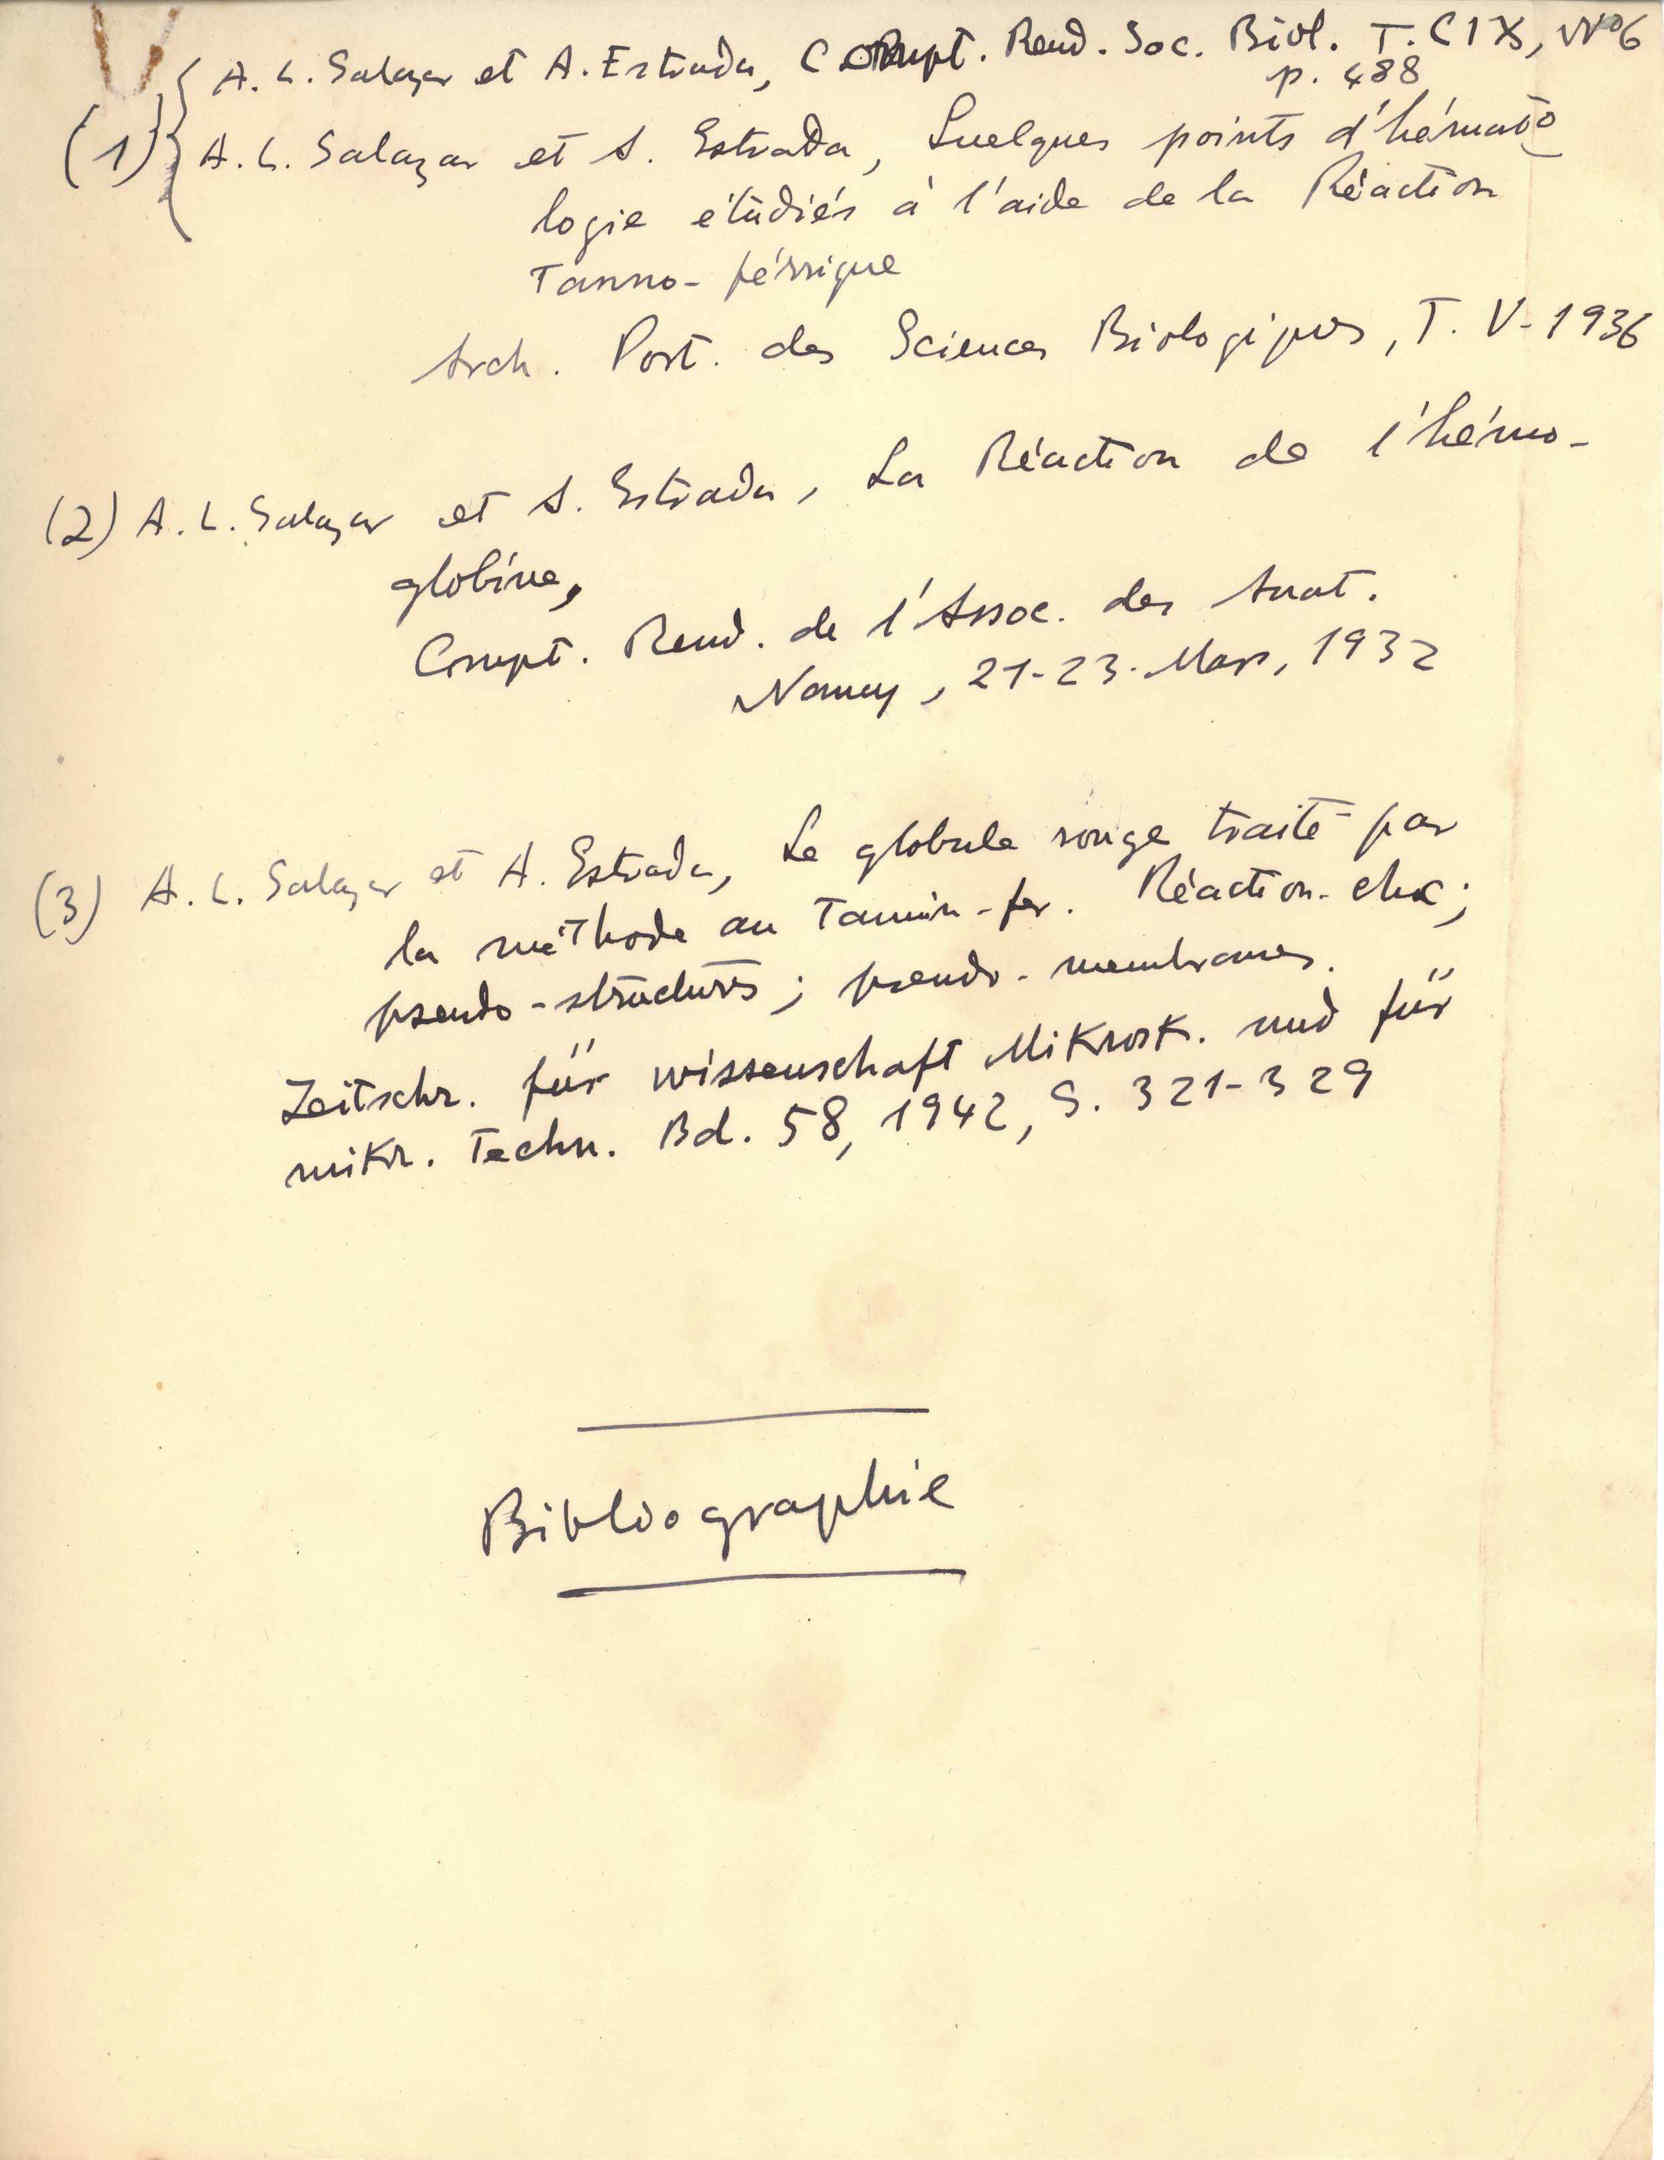 A. L. Salazar et A. Estrada, Compt. Rend. Soc. Biol. T. CIX, Nº 6
p. 488
(1) A. L. Salazar et A. Estrada, Quelques points d'hémato
logie étudiés à l'aide de la Réaction
Tanno-férrique
Arch. Port. des Sciences Biologiques, T. V-1936
(2) A. L. Salazar et A. Estrada, La Réaction de l'hémo-
globine,
Compt. Rend. de l'Assoc. des Anat.
Nancy, 21-23. Mars, 1932
(3) A. L. Salazar et A. Estrada, Le globule rouge traité par
la méthode au Tannin-fer. Réaction-;
pseudo-structures; pseudo-membranes.
Zeitschr. für wissenschaft Mikrosk. und für
mikr. Techn. Bd. 58, 1942, S. 321-329
Bibliographie